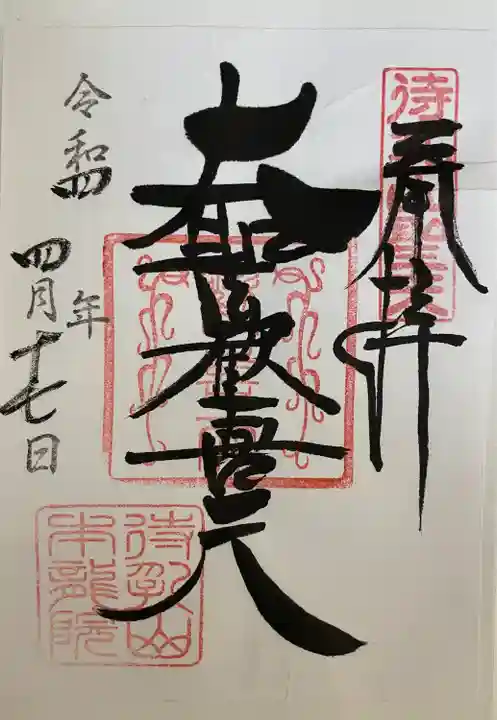 待乳山聖天
奉拝
大聖歓喜天
令和四年
四月十七日
待乳山
本龍院